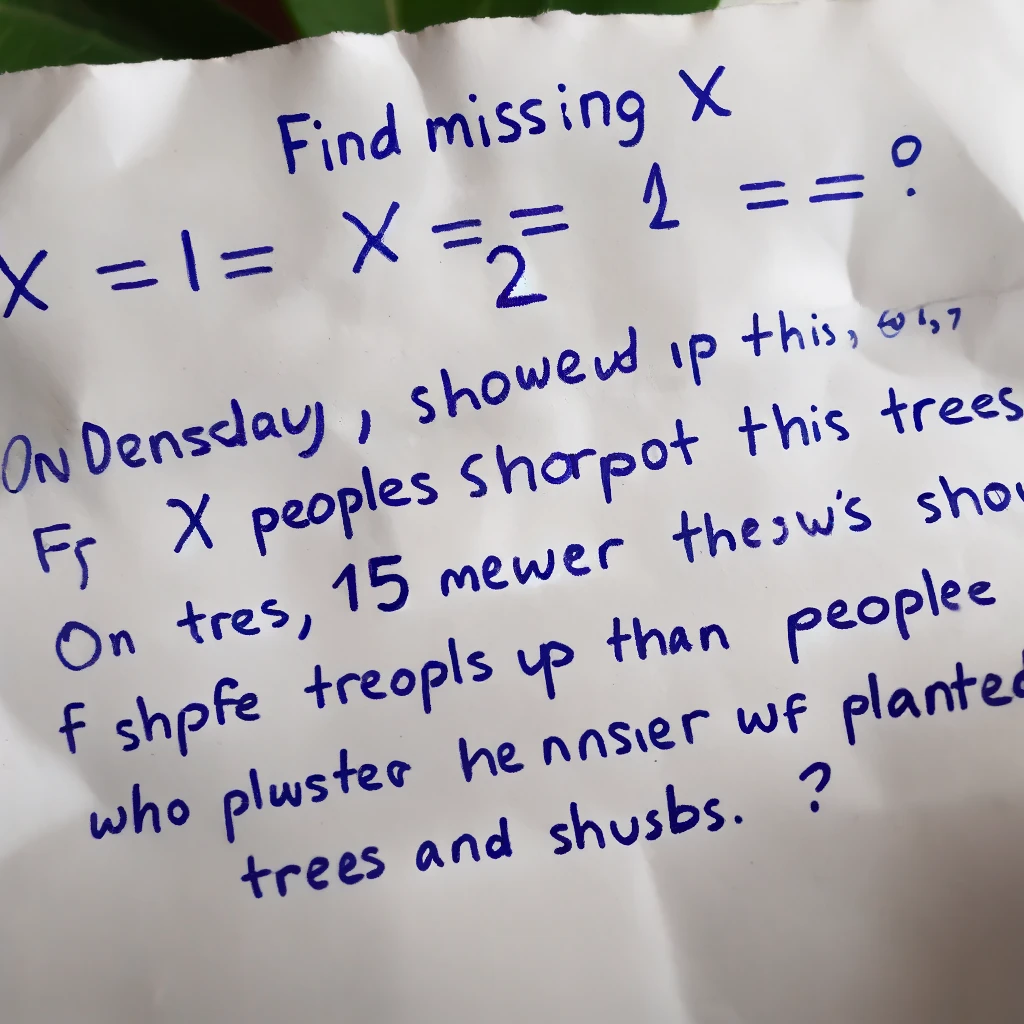 Find missing X
X = 1 = X = = 1 = = ?
2
ON Densday, showeud ip this,
X peoples shorpot this trees
On tres, 15 mewer show
f shpfe treopls up than peoplee
who he nnsier wf planted
trees and shusbs. ?